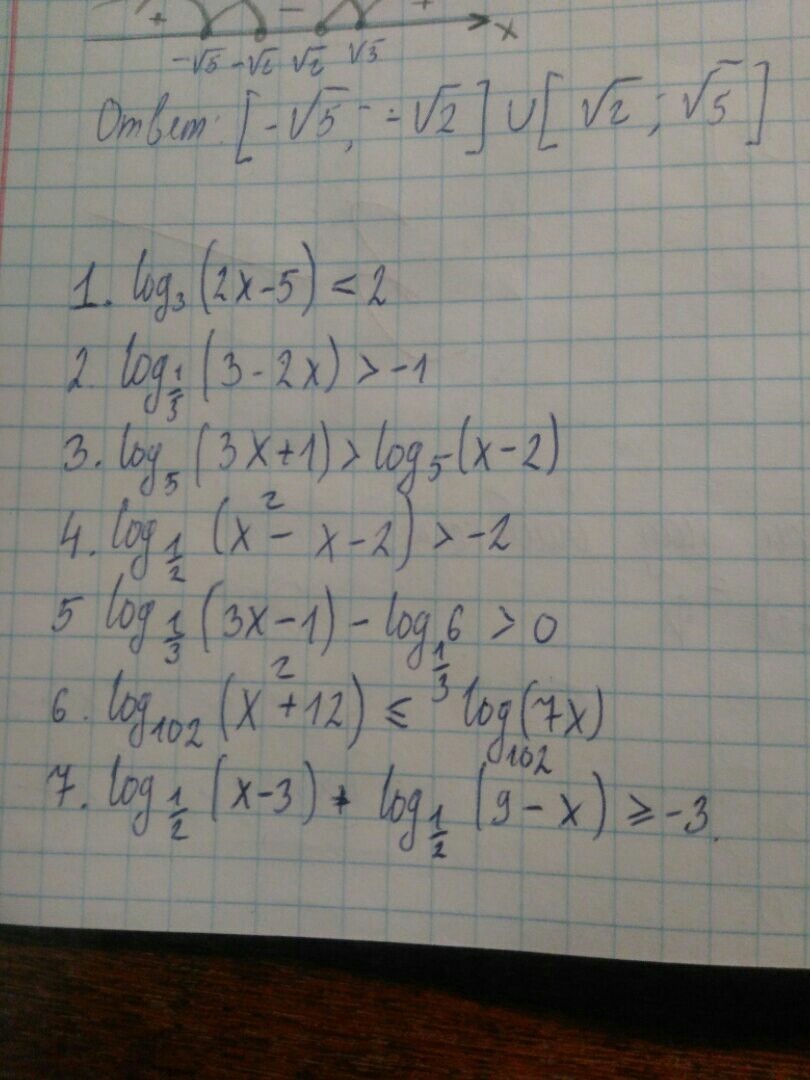 + − + x
-√5 -√2 √2 √5
Ответ: [-√5; -√2] ∪ [√2; √5]
1. log₃(2x-5) < 2
2. log_{1/3}(3-2x) > -1
3. log₅(3x+1) > log₅(x-2)
4. log_{1/2}(x²-x-2) > -2
5 log_{1/3}(3x-1) - log_{1/3}6 > 0
6. log₁₀₂(x²+12) ≤ log₁₀₂(7x)
7. log_{1/2}(x-3) + log_{1/2}(9-x) ≥ -3.